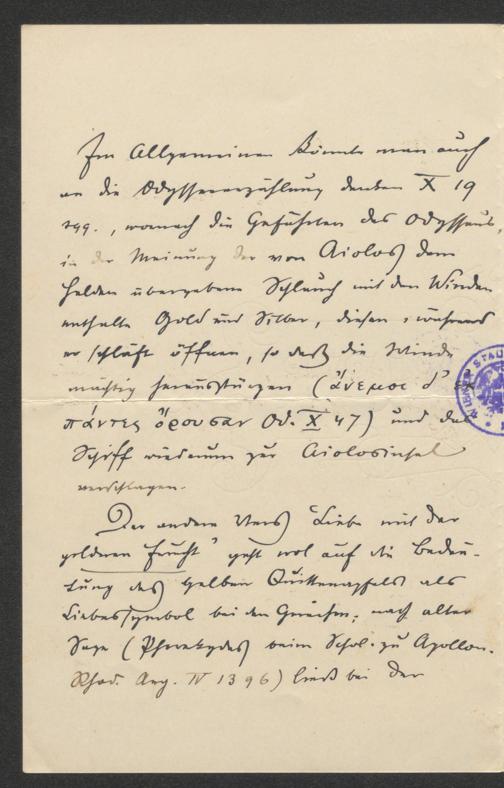 Im Allgemeinen könnte man auch
an die Odysseeerzählung denken X 19
sqq., wonach die Gefährten des Odysseus,
in der Meinung der von Aiolos dem
Helden übergebene Schlauch mit den Winden
enthalte Gold und Silber, diesen, während
er schläft öffnen, so daß die Winde
mächtig herausstürzen (ἄνεμοι δ' ἐκ
πάντες ὄρουσαν Od. X 47) und das
Schiff wiederum zur Aiolosinsel
verschlagen.
Der andere Vers "Liebe mit der
goldenen Frucht" geht wol auf die Bedeu-
tung des gelben Quittenapfels als
Liebessymbol bei den Griechen; nach alter
Sage (Pherekydes beim Schol. zu Apollon.
Rhod. Arg. IV 1396) ließ bei der